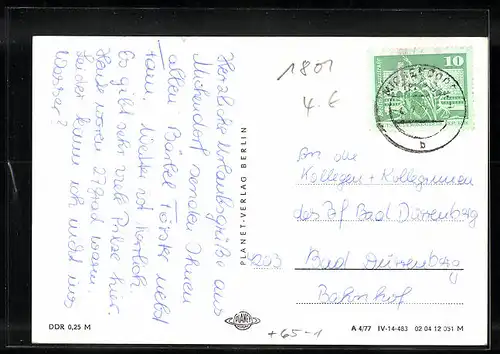 Herzliche Urlaubsgrüße aus
Mückendorf senden Ihnen
allen Bärbel Förster nebst
Fam. Wetter ist herrlich.
Es gibt sehr viele Pilze hier.
Heute waren 27 Grad warm.
Leider kann ich nicht ins
Wasser!
DDR 0,25 M
PLANET-VERLAG BERLIN
PLANET
1801
4.€
10
DDR
b
An die
Kollegen + Kolleginnen
des Bf Bad Dürrenberg
4203 Bad Dürrenberg
Bahnhof
+65-1
A 4/77 IV-14-483 02 04 12 051 M